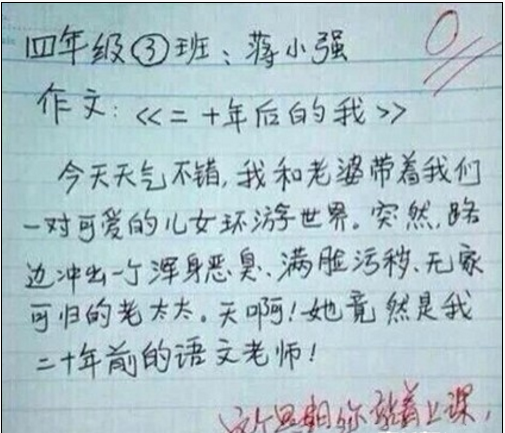 四年级③班：蒋小强
0
作文：<<二十年后的我>>
今天天气不错,我和老婆带着我们
一对可爱的儿女环游世界。突然,路
边冲出一个浑身恶臭、满脸污秽、无家
可归的老太太。天啊!她竟然是我
二十年前的语文老师!
这个星期你站着上课,